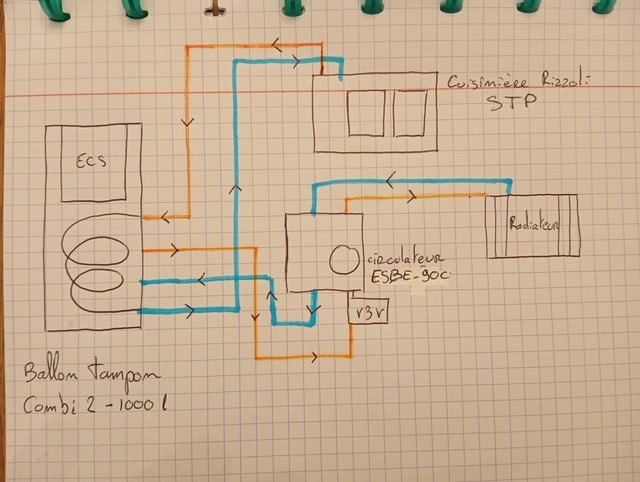 Cuisinière Rizzoli
STP
ECS
Radiateur
circulateur
ESBE-90C
V3V
Ballon tampon
Combi 2 - 1000 l